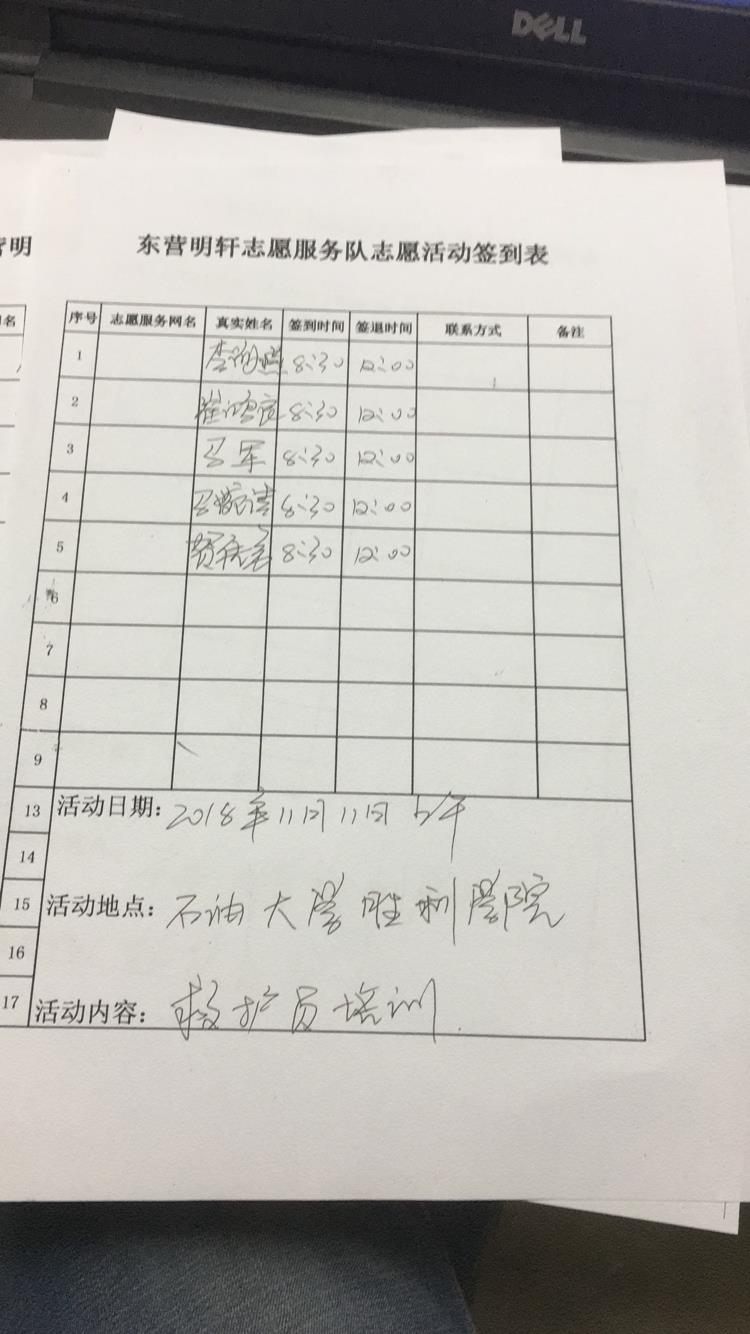 DELL
营明
东营明轩志愿服务队志愿活动签到表
名
序号 志愿服务网名 真实姓名 签到时间 签退时间 联系方式 备注
1 8:30 12:00
2 8:30 12:00
3 马军 8:30 12:00
4 8:30 12:00
5 8:30 12:00
6
7
8
9
13 活动日期: 2018年11月11日上午
14
15 活动地点: 石油大学胜利学院
16
17 活动内容: 救护员培训